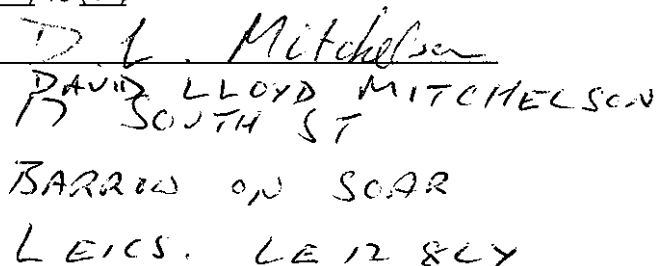 D. L. Mitchelson
DAVID LLOYD MITCHELSON
17 SOUTH ST
BARROW ON SOAR
LEICS. LE12 8LY